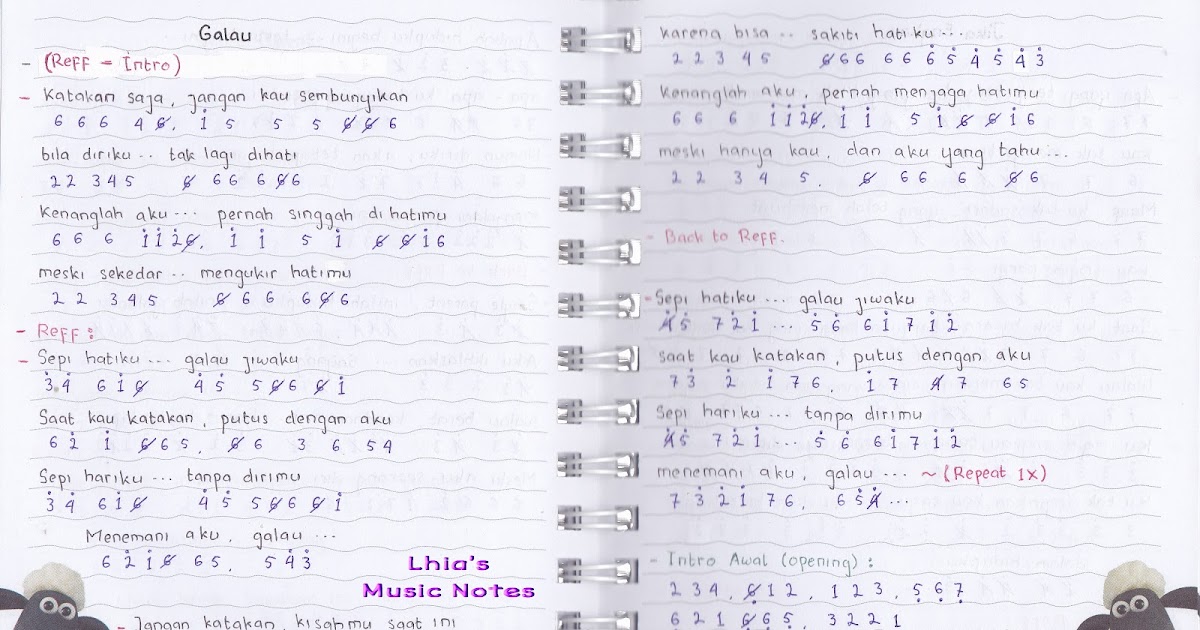 Galau
- (Reff = Intro)
- Katakan saja, jangan kau sembunyikan
6 6 6 4 6̸. i 5 5 5 6̸ 6̸ 6
bila diriku .. tak lagi dihati
2 2 3 4 5 6̸ 6 6 6 6̸ 6
Kenanglah aku ... pernah singgah di hatimu
6 6 6 i i 2̇ 6̸. i i 5 i 6̸ 6̸ i 6
meski sekedar .. mengukir hatimu
2 2 3 4 5 6̸ 6 6 6 6̸ 6
- Reff :
- Sepi hatiku ... galau jiwaku
3̇ 4̇ 6 i 6̸ 4̇ 5̇ 5 6̸ 6 6̸ i
Saat kau katakan, putus dengan aku
6 2̇ i 6̸ 6 5. 6̸ 6 3 6 5 4
Sepi hariku ... tanpa dirimu
3̇ 4̇ 6 i 6̸ 4̇ 5̇ 5 6̸ 6 6̸ i
Menemani aku, galau ...
6 2̇ i 6̸ 6 5. 5 4̇ 3̇
- Jangan katakan, kisahmu saat ini
Lhia's
Music Notes
karena bisa .. sakiti hatiku ...
2 2 3 4 5 6̸ 6 6 6 6 6̇ 5̇ 4̇ 5̇ 4̇ 3̇
Kenanglah aku, pernah menjaga hatimu
6 6 6 i i 2̇ 6̸. i i 5 i 6̸ 6̸ i 6
meski hanya kau, dan aku yang tahu ...
2 2 3 4 5. 6̸ 6 6 6 6̸ 6
- Back to Reff.
- Sepi hatiku ... galau jiwaku
4̸̇ 5̇ 7 2̇ i ... 5̇ 6̇ 6 i 7 i 2̇
Saat kau katakan, putus dengan aku
7 3̇ 2̇ i 7 6. i 7 4̸ 7 6 5
Sepi hariku ... tanpa dirimu
4̸̇ 5̇ 7 2̇ i ... 5̇ 6̇ 6 i 7 i 2̇
menemani aku, galau ... ~ (Repeat 1x)
7 3̇ 2̇ i 7 6. 6 5̇ 4̸̇ ...
- Intro Awal (opening) :
2 3 4. 6̸̣ 1 2. 1 2 3. 5̣ 6̣ 7̣
6 2 1 6̸̣ 6̣ 5̣. 3 2 2 1